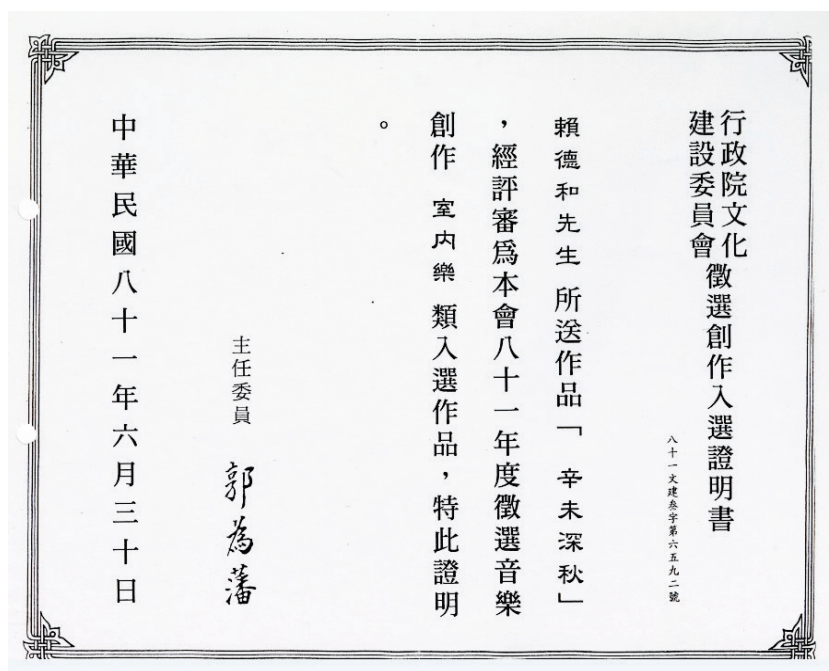 行政院文化
建設委員會
徵選創作入選證明書
八十一文建叁字第六五九二號
賴德和先生 所送作品「辛未深秋」
，經評審為本會八十一年度徵選音樂
創作 室內樂 類入選作品，特此證明
。
主任委員 郭為藩
中華民國八十一年六月三十日